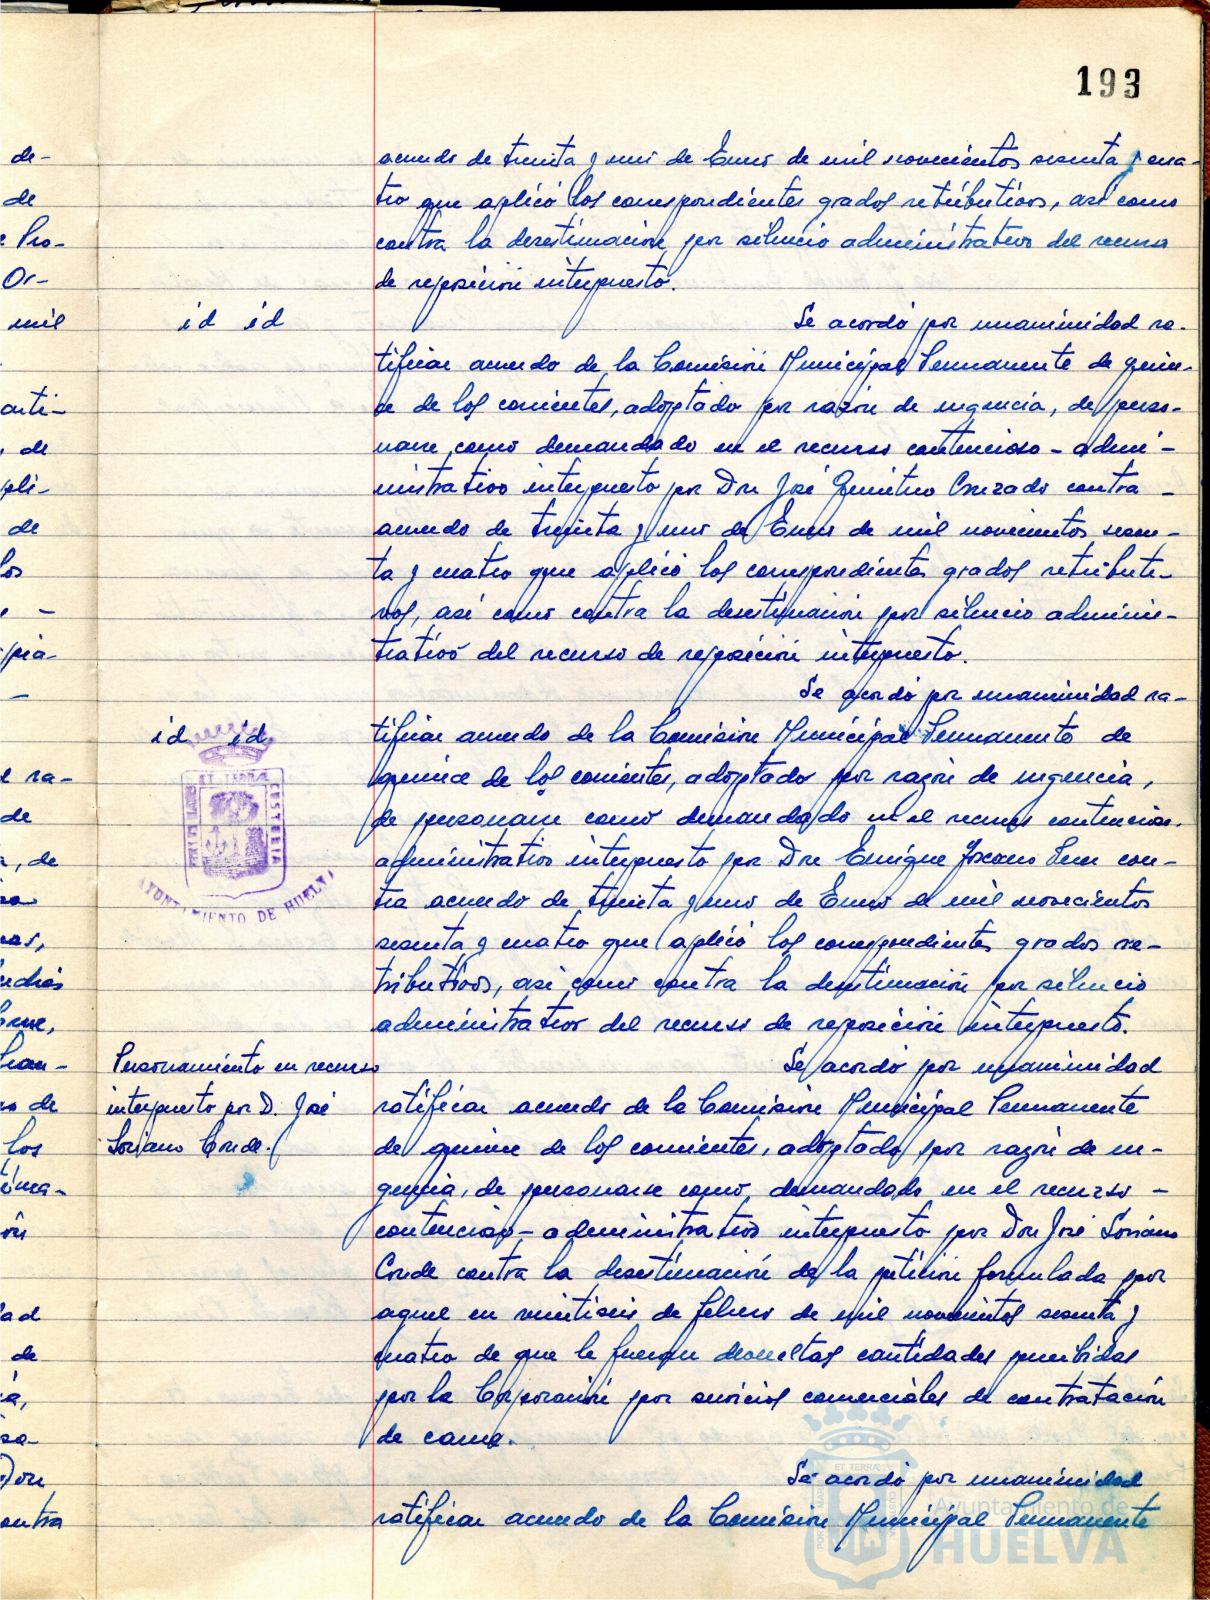 193
acuerdo de treinta y uno de Enero de mil novecientos sesenta y cua-
tro que aplicó los correspondientes grados retributivos, así como
contra la desestimación por silencio administrativo del recurso
de reposición interpuesto.
id id
Se acordó por unanimidad ra-
tificar acuerdo de la Comisión Municipal Permanente de quin-
ce de los corrientes, adoptado por razón de urgencia, de perso-
narse como demandado en el recurso contencioso-admi-
nistrativo interpuesto por Don José Quintero Cruzado contra
acuerdo de treinta y uno de Enero de mil novecientos sesen-
ta y cuatro que aplicó los correspondientes grados retributi-
vos, así como contra la desestimación por silencio adminis-
trativo del recurso de reposición interpuesto.
Se acordó por unanimidad ra-
id id
tificar acuerdo de la Comisión Municipal Permanente de
quince de los corrientes, adoptado por razón de urgencia,
de personarse como demandado en el recurso contencioso-
administrativo interpuesto por Don Enrique con-
tra acuerdo de treinta y uno de Enero de mil novecientos
sesenta y cuatro que aplicó los correspondientes grados re-
tributivos, así como contra la desestimación por silencio
administrativo del recurso de reposición interpuesto.
ET TERRÆ
CUSTODIA
PORTUS MARIS
AYUNTAMIENTO DE HUELVA
Personamiento en recurso
interpuesto por D. José
Soriano Conde.
Se acordó por unanimidad
ratificar acuerdo de la Comisión Municipal Permanente
de quince de los corrientes, adoptado por razón de ur-
gencia, de personarse como demandado en el recurso -
contencioso-administrativo interpuesto por Don José Soriano
Conde contra la desestimación de la petición formulada por
aquel en veintiseis de febrero de mil novecientos sesenta y
cuatro de que le fueran devueltas cantidades percibidas
por la Corporación por servicios comerciales de contratación
de carne.
Se acordó por unanimidad
ratificar acuerdo de la Comisión Municipal Permanente
Ayuntamiento de
HUELVA